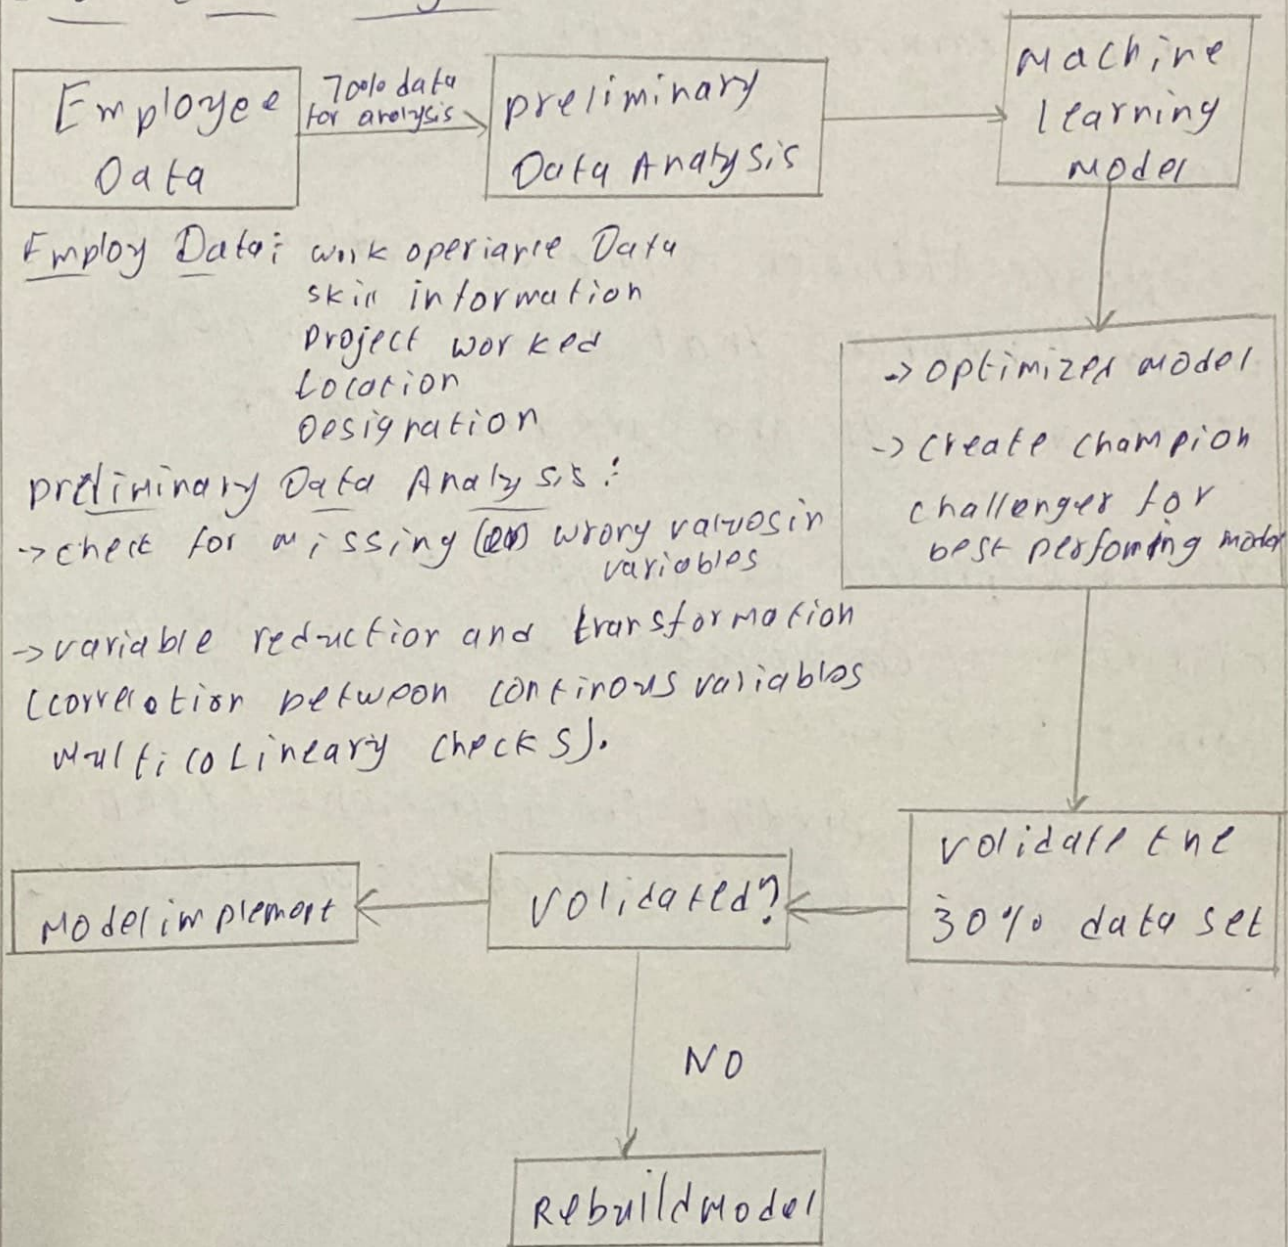 Employee
Data
70% data
for analysis
preliminary
Data Analysis
Machine
learning
model
Employ Data: work operiance Data
skill information
project worked
Location
Designation
preliminary Data Analysis:
-> check for missing (or) wrong values in
variables
-> variable reduction and transformation
(correlation between continous variables
multicolineary checks).
-> optimized model
-> create champion
challenger for
best perfoming model
validate the
30% data set
validated?
Model implement
NO
Rebuild Model